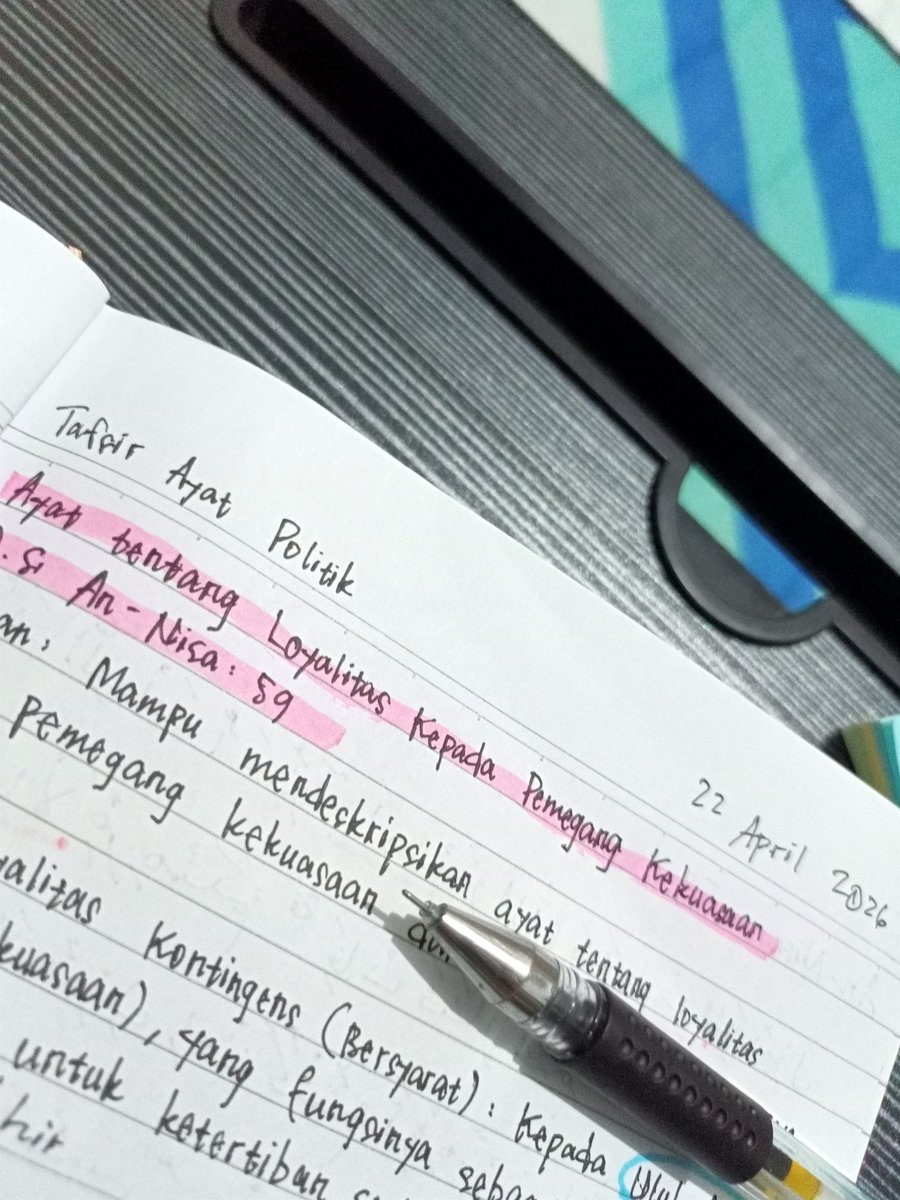 Tafsir Ayat Politik
22 April 2026
Ayat tentang Loyalitas Kepada Pemegang Kekuasaan
An-Nisa: 59
Mampu mendeskripsikan ayat tentang loyalitas
pemegang kekuasaan
Kontingens (Bersyarat): Kepada
yang fungsinya
untuk ketertiban